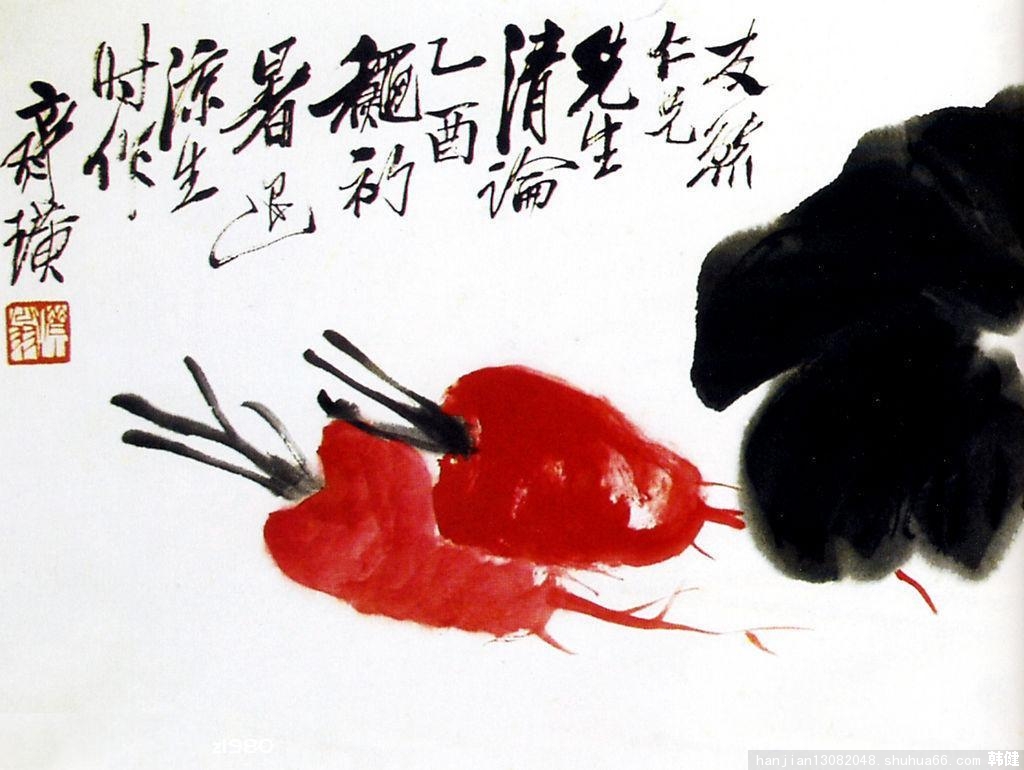 友
仁兄
先生
清論
乙酉
龝初
暑退
涼生
时作
齊璜
借山翁
zl980
hanjian13082048 shuhua66.com 韩健